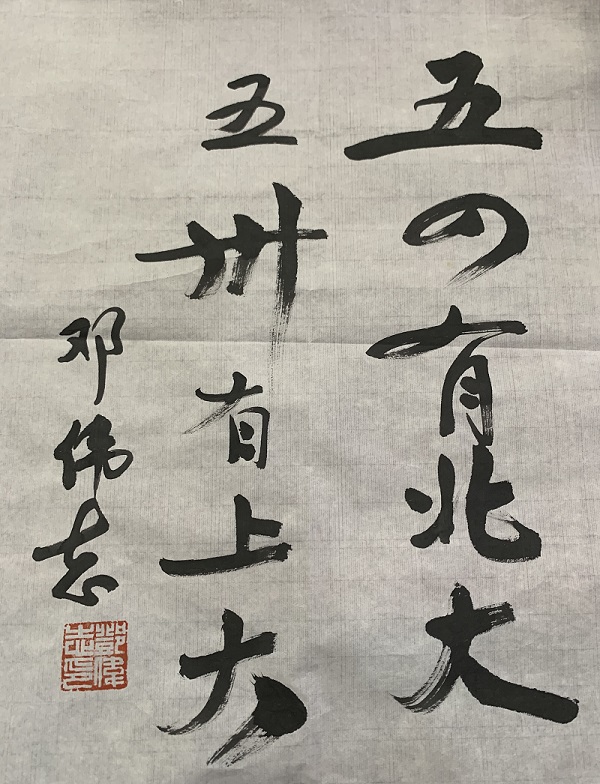 五四有北大
五卅有上大
邓伟志
鄧偉志印